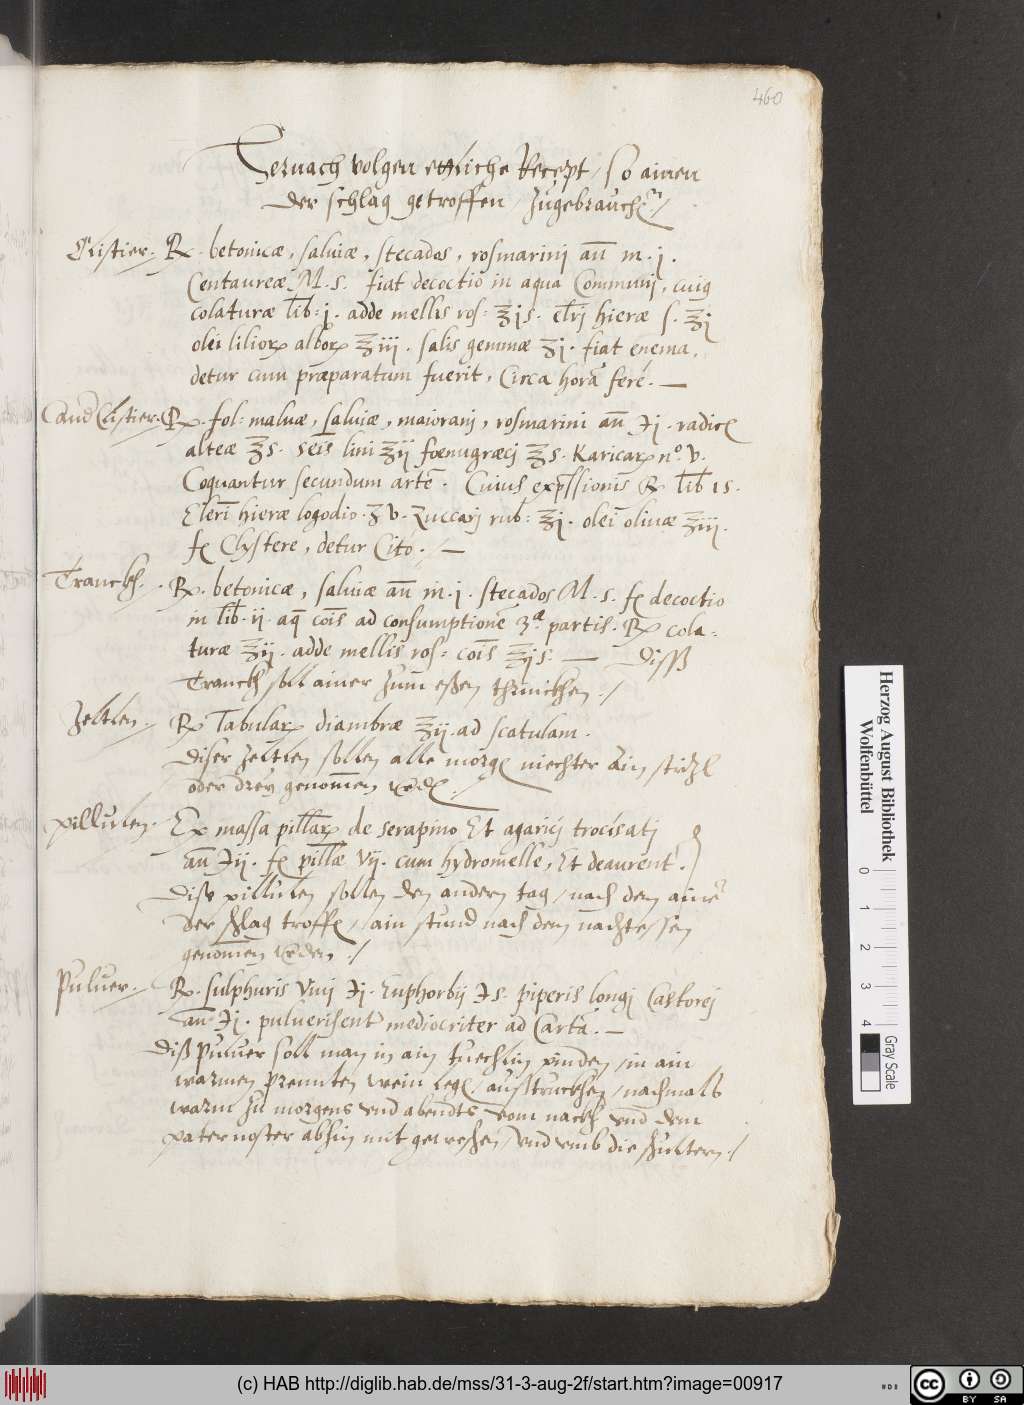 460
Hernach volgen ettliche Recept / so ainen
der schlag getroffen / zugebrauchē /
Clistier. ℞. betonicæ, saluiæ, stecados, rosmarinj an̄ m. j.
Centaureæ M. s. fiat decoctio in aqua Communj, cuiq
colaturæ lib: j. adde mellis ros: ℥js. elrj hieræ s. ℥j
olei liliorꝝ alborꝝ ℥iij. salis gemmæ ʒj. fiat enema,
detur cum præparatum fuerit, Circa horā ferè. —
Aund Clistier. ℞. fol: maluæ, saluiæ, maioranj, rosmarini an̄ Mj. radicꝭ
alteæ ℥s. seīs lini ʒij fœnugræcj ℥s. Karicarꝝ nº. v.
Coquantur secundum artē. Cuius exp̄ssionis ℞ lib 1s.
Elerī hieræ logodio. ʒ v. Zuccarj rub: ℥j. olei oliuæ ℥iij.
fꝭ Clystere, detur Citò. / —
Tranckh. ℞. betonicæ, saluiæ an̄ m. j. stecados M. s. fꝭ decoctio
in lib. ij. aq̄ cōis ad consumptionē 3.æ partis. ℞ cola-
turæ ℥ij. adde mellis ros: cōis ℥js. — Disß
Tranckh soll ainer zum eßen thrinckhen. /
Zeltlen. ℞ Tabularꝝ diambræ ℥ij. ad scatulam.
Diser zeltlen sollen alle morgē niechter ain stickhl
oder drey genom̄en werdē. /
Pillulen. Ex massa pillarꝝ de serapino Et agaricj trocisatj
an̄ ℈ij. fꝭ pillæ vij. cum hydromelle, Et deaurent.
Dise pillulen sollen den andern tag / nach dem ainē
der schlag troffē / ain stund nach dem nachtessen
genom̄en werden. /
Puluer. ℞. sulphuris viuj ℈j. Euphorbij ℈s. piperis longj Castorej
an̄ ℈j. puluerisent mediocriter ad Cartā. —
Diß puluer soll man in ain tuechlin pinden / in ain
warmen prennten wein legē / außtruckhen / nachmals
warm zu morgens vnd abendts vom nackh vnd dem
paternoster abhin mit gewesen / vnd vmb die schultern. /
Herzog August Bibliothek
Wolfenbüttel
0
1
2
3
4
Gray Scale
(c) HAB http://diglib.hab.de/mss/31-3-aug-2f/start.htm?image=00917
cc
BY SA